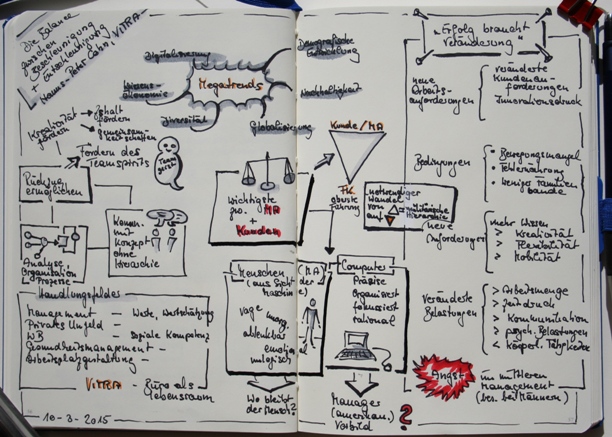 Die Balance
zwischen
Beschleunigung
+ Entschleunigung
Hanns-Peter Cohn, VITRA
Kreativität
fördern
→ Inhalt
fördern
→ gemeinsam
Fördern des
Teamspirits
Team
geist
Rückzug
ermöglichen
Analyse
Organisation
Prozesse
Komm.
mit
Konzept
ohne
Hierarchie
Handlungsfelder
Management – Werte, Wertschätzung
Privates Umfeld –
WB – Soziale Kompetenz
Gesundheitsmanagement –
Arbeitsplatzgestaltung –
VITRA – Büro als
Lebensraum
10-3-2015
Digitalisierung
Wissens-
ökonomie
Diversität
Megatrends
Demografische
Entwicklung
Nachhaltigkeit
Globalisierung
Wichtigste
zw. MA
+
Kunden
Kunde/MA
FK
oberste
Führung
notwendiger
Wandel
von
auf
militärische
Hierarchie
Menschen (MA
(aus Sicht der
Maschine)
vage
ablenkbar
emotional
unlogisch
Wo bleibt
der Mensch?
Computer
Präzise
Organisiert
fokussiert
rational
Manager
(amerikan.)
Vorbild
?
"Erfolg braucht
Veränderung"
neue
Arbeits-
anforderungen
veränderte
Kundenan-
forderungen
Innovationsdruck
Bedingungen
Bewegungsmangel
Fehlernährung
weniger Familien
bande
neue
Anforderungen
mehr Wissen
> Kreativität
> Flexibilität
> Mobilität
Veränderte
Belastungen
> Arbeitsmenge
> Zeitdruck
> Kommunikation
> psych. Belastungen
< körperl. Tätigkeiten
Angst
im mittleren
Management
(bes. bei Männern)